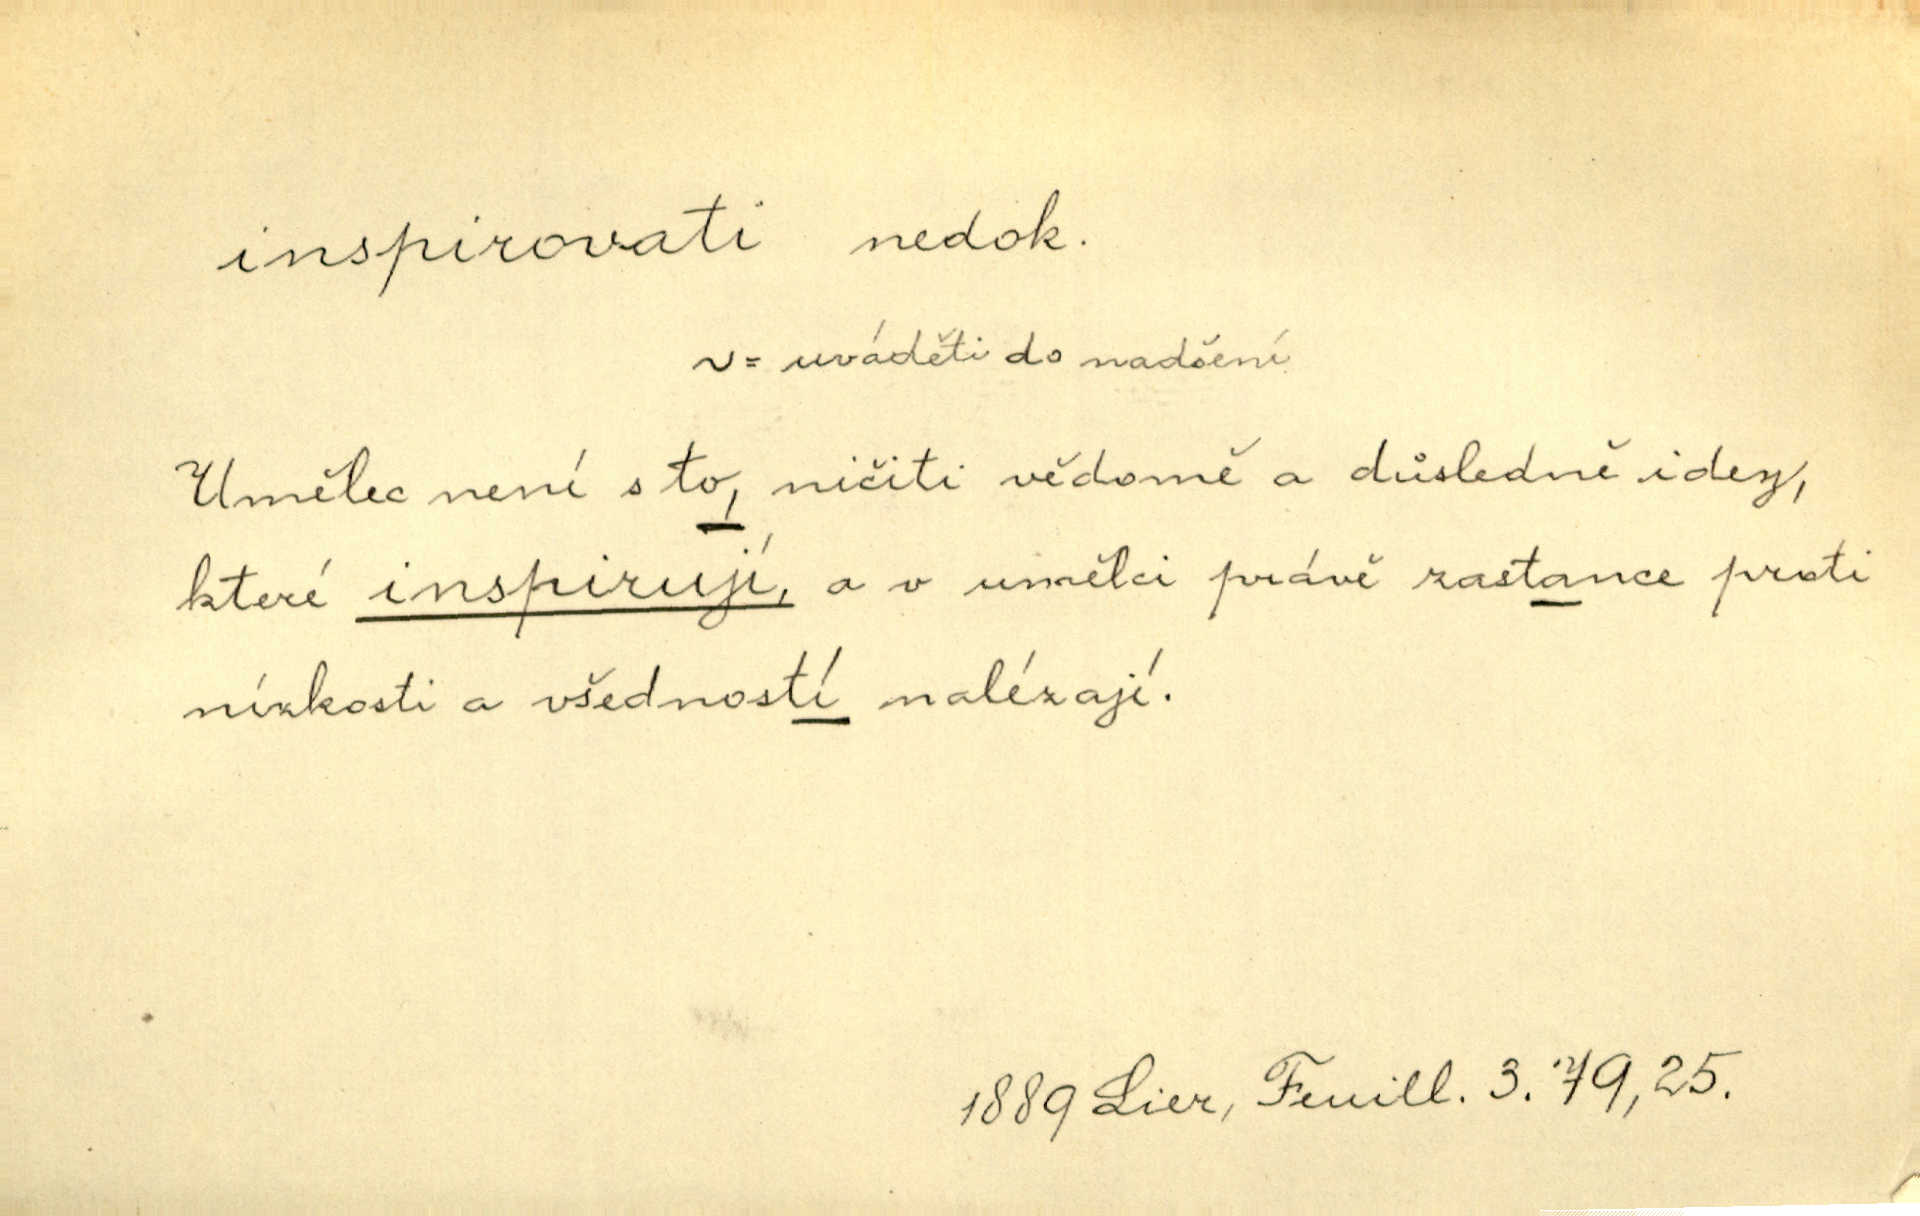 inspirovati nedok.
v = uváděti do nadšení
Umělec není s to, ničiti vědomě a důsledně idey,
které inspirují, a v umělci právě zastance proti
nízkosti a všedností nalézají.
1889 Lier, Feuill. 3. 79, 25.